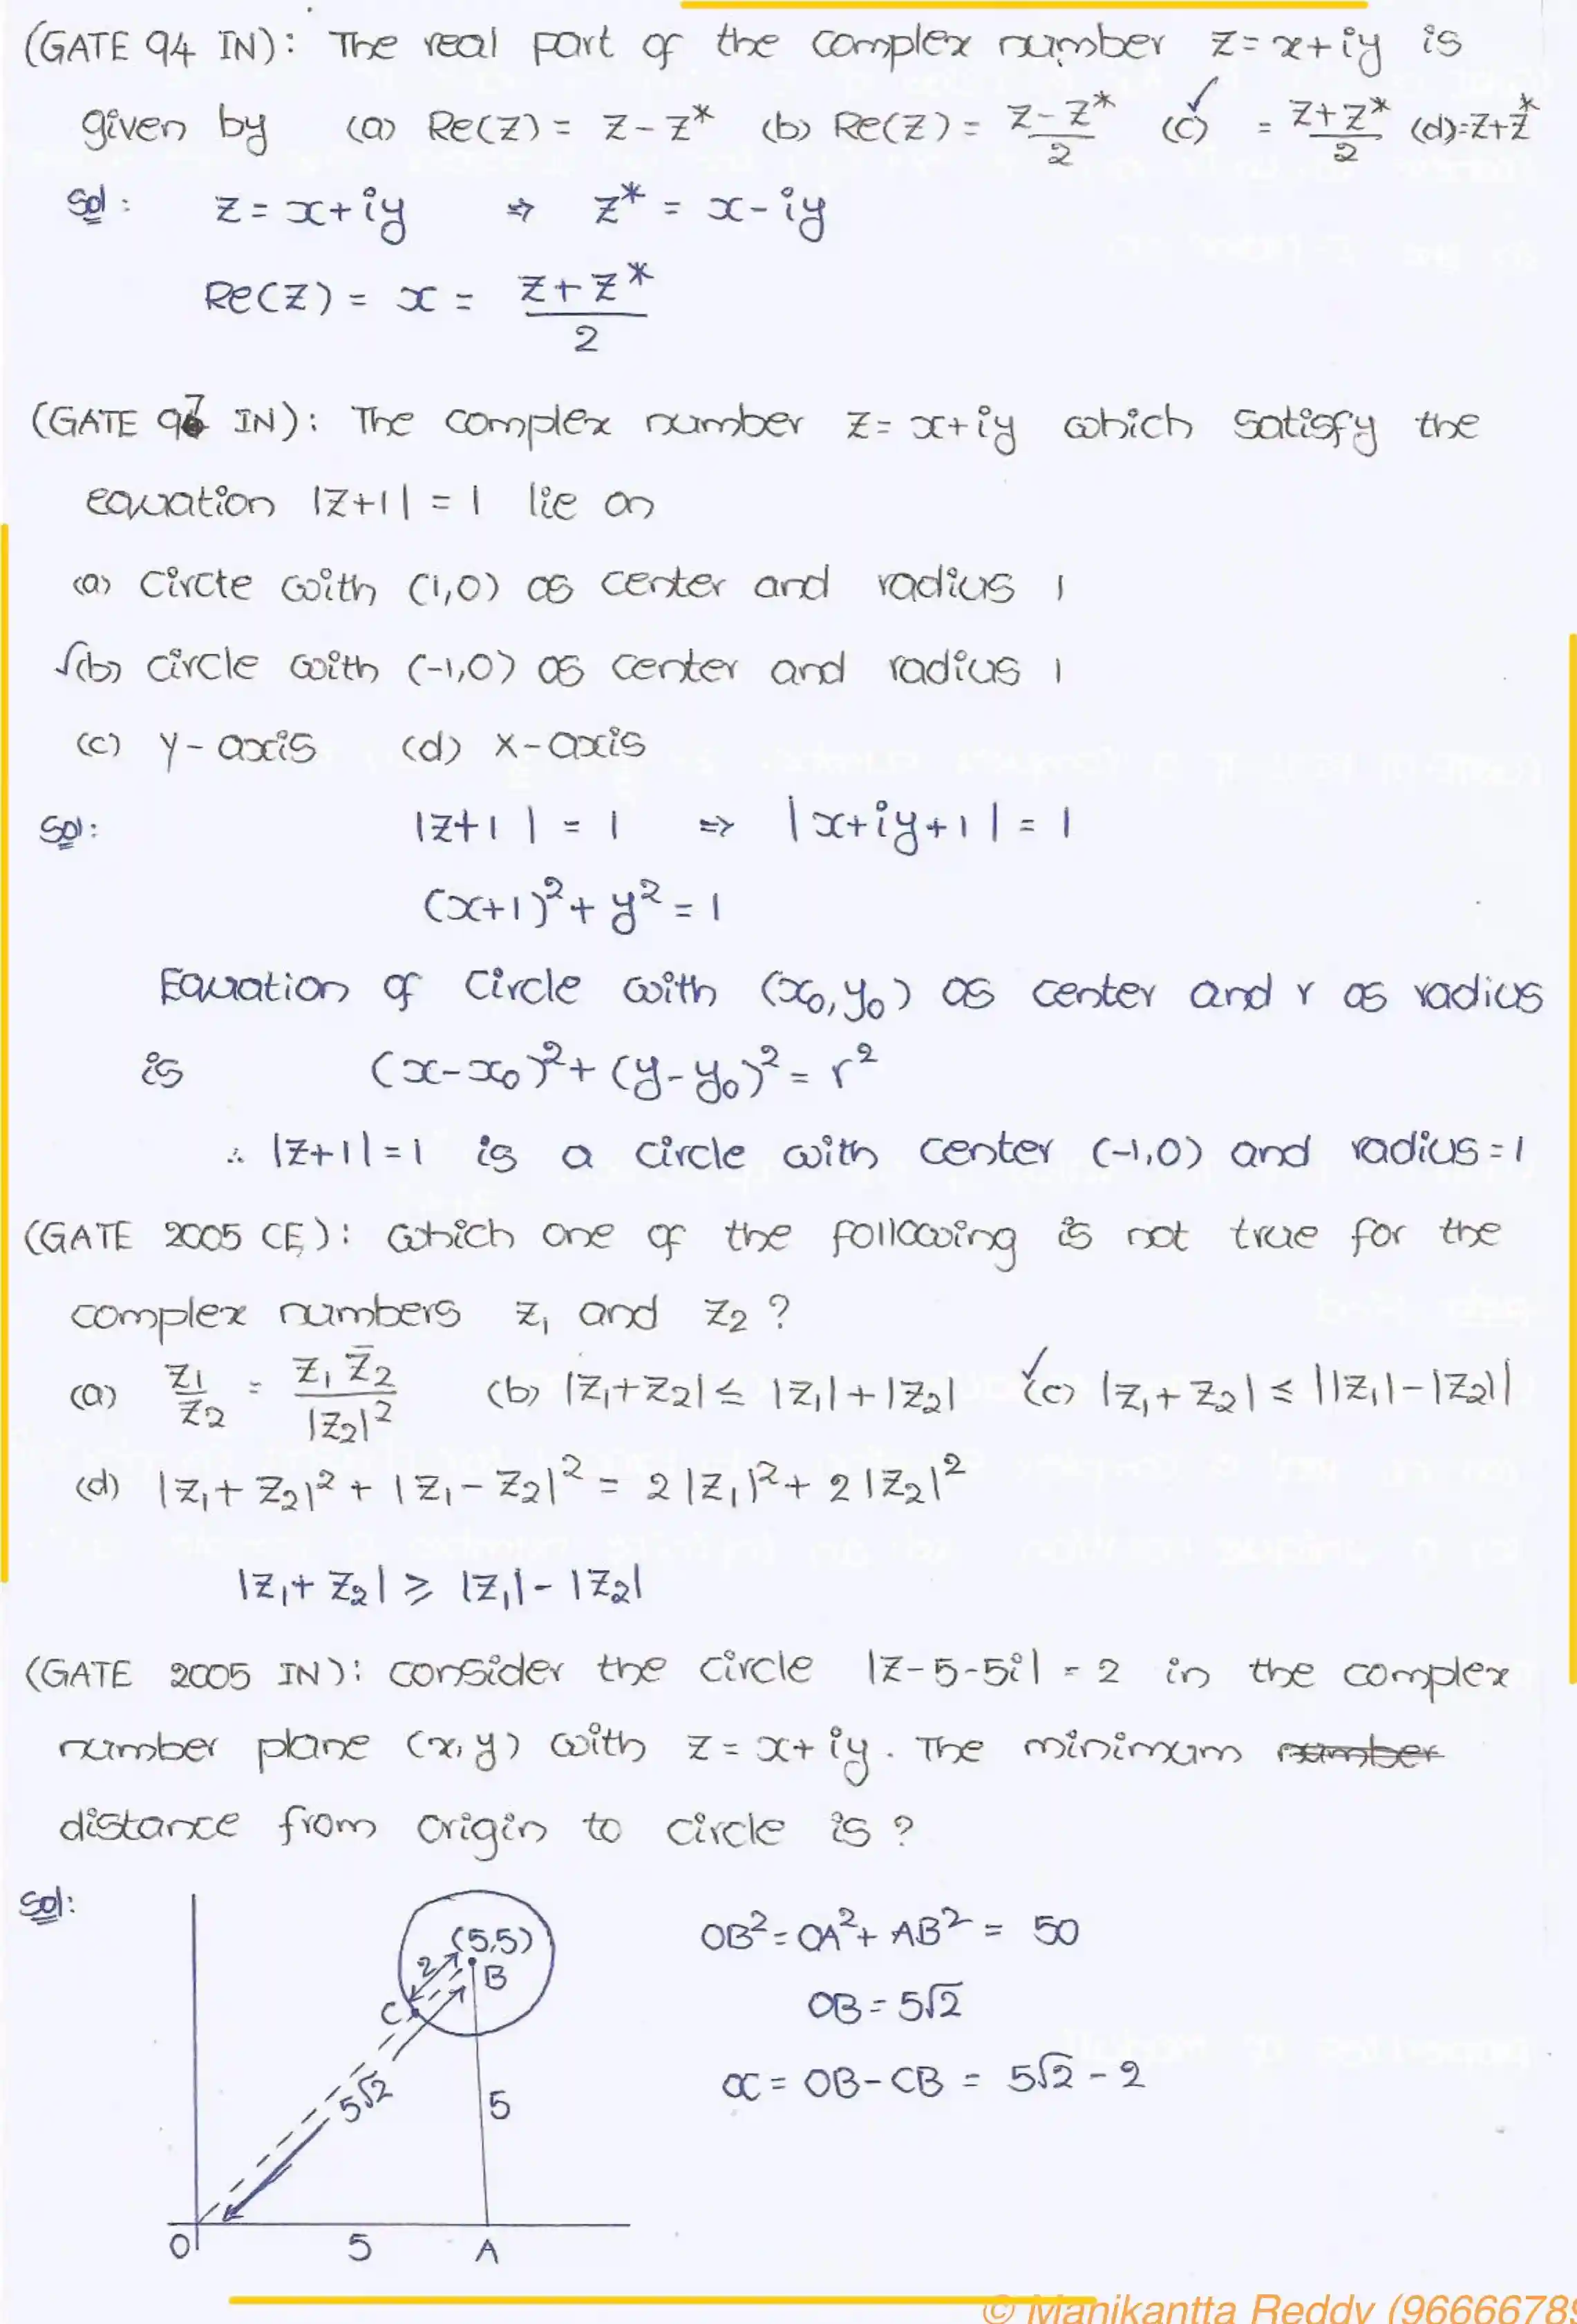 (GATE 94 IN): The real part of the complex number z = x+iy is
given by (a) Re(z) = z - z* (b) Re(z) = (z - z*)/2 ✓(c) = (z + z*)/2 (d) = z + z*
Sol: z = x+iy ⇒ z* = x-iy
Re(z) = x = (z + z*)/2
(GATE 97 IN): The complex number z = x+iy which satisfy the
equation |z+1| = 1 lie on
(a) circte with (1,0) as center and radius 1
✓(b) circle with (-1,0) as center and radius 1
(c) y-axis (d) x-axis
Sol: |z+1| = 1 ⇒ |x+iy+1| = 1
(x+1)² + y² = 1
Equation of circle with (x₀,y₀) as center and r as radius
is (x-x₀)² + (y-y₀)² = r²
∴ |z+1| = 1 is a circle with center (-1,0) and radius = 1
(GATE 2005 CE): Which one of the following is not true for the
complex numbers z₁ and z₂ ?
(a) z₁/z₂ = z₁ z̄₂/|z₂|² (b) |z₁+z₂| ≤ |z₁|+|z₂| ✓(c) |z₁+z₂| ≤ ||z₁|-|z₂||
(d) |z₁+z₂|² + |z₁-z₂|² = 2|z₁|² + 2|z₂|²
|z₁+z₂| ≥ |z₁| - |z₂|
(GATE 2005 IN): consider the circle |z-5-5i| = 2 in the complex
number plane (x,y) with z = x+iy. The minimum number
distance from origin to circle is ?
Sol:
(5,5)
2
B
C
5√2
5
O 5 A
OB² = OA² + AB² = 50
OB = 5√2
OC = OB - CB = 5√2 - 2
© Manikantta Reddy (96666789